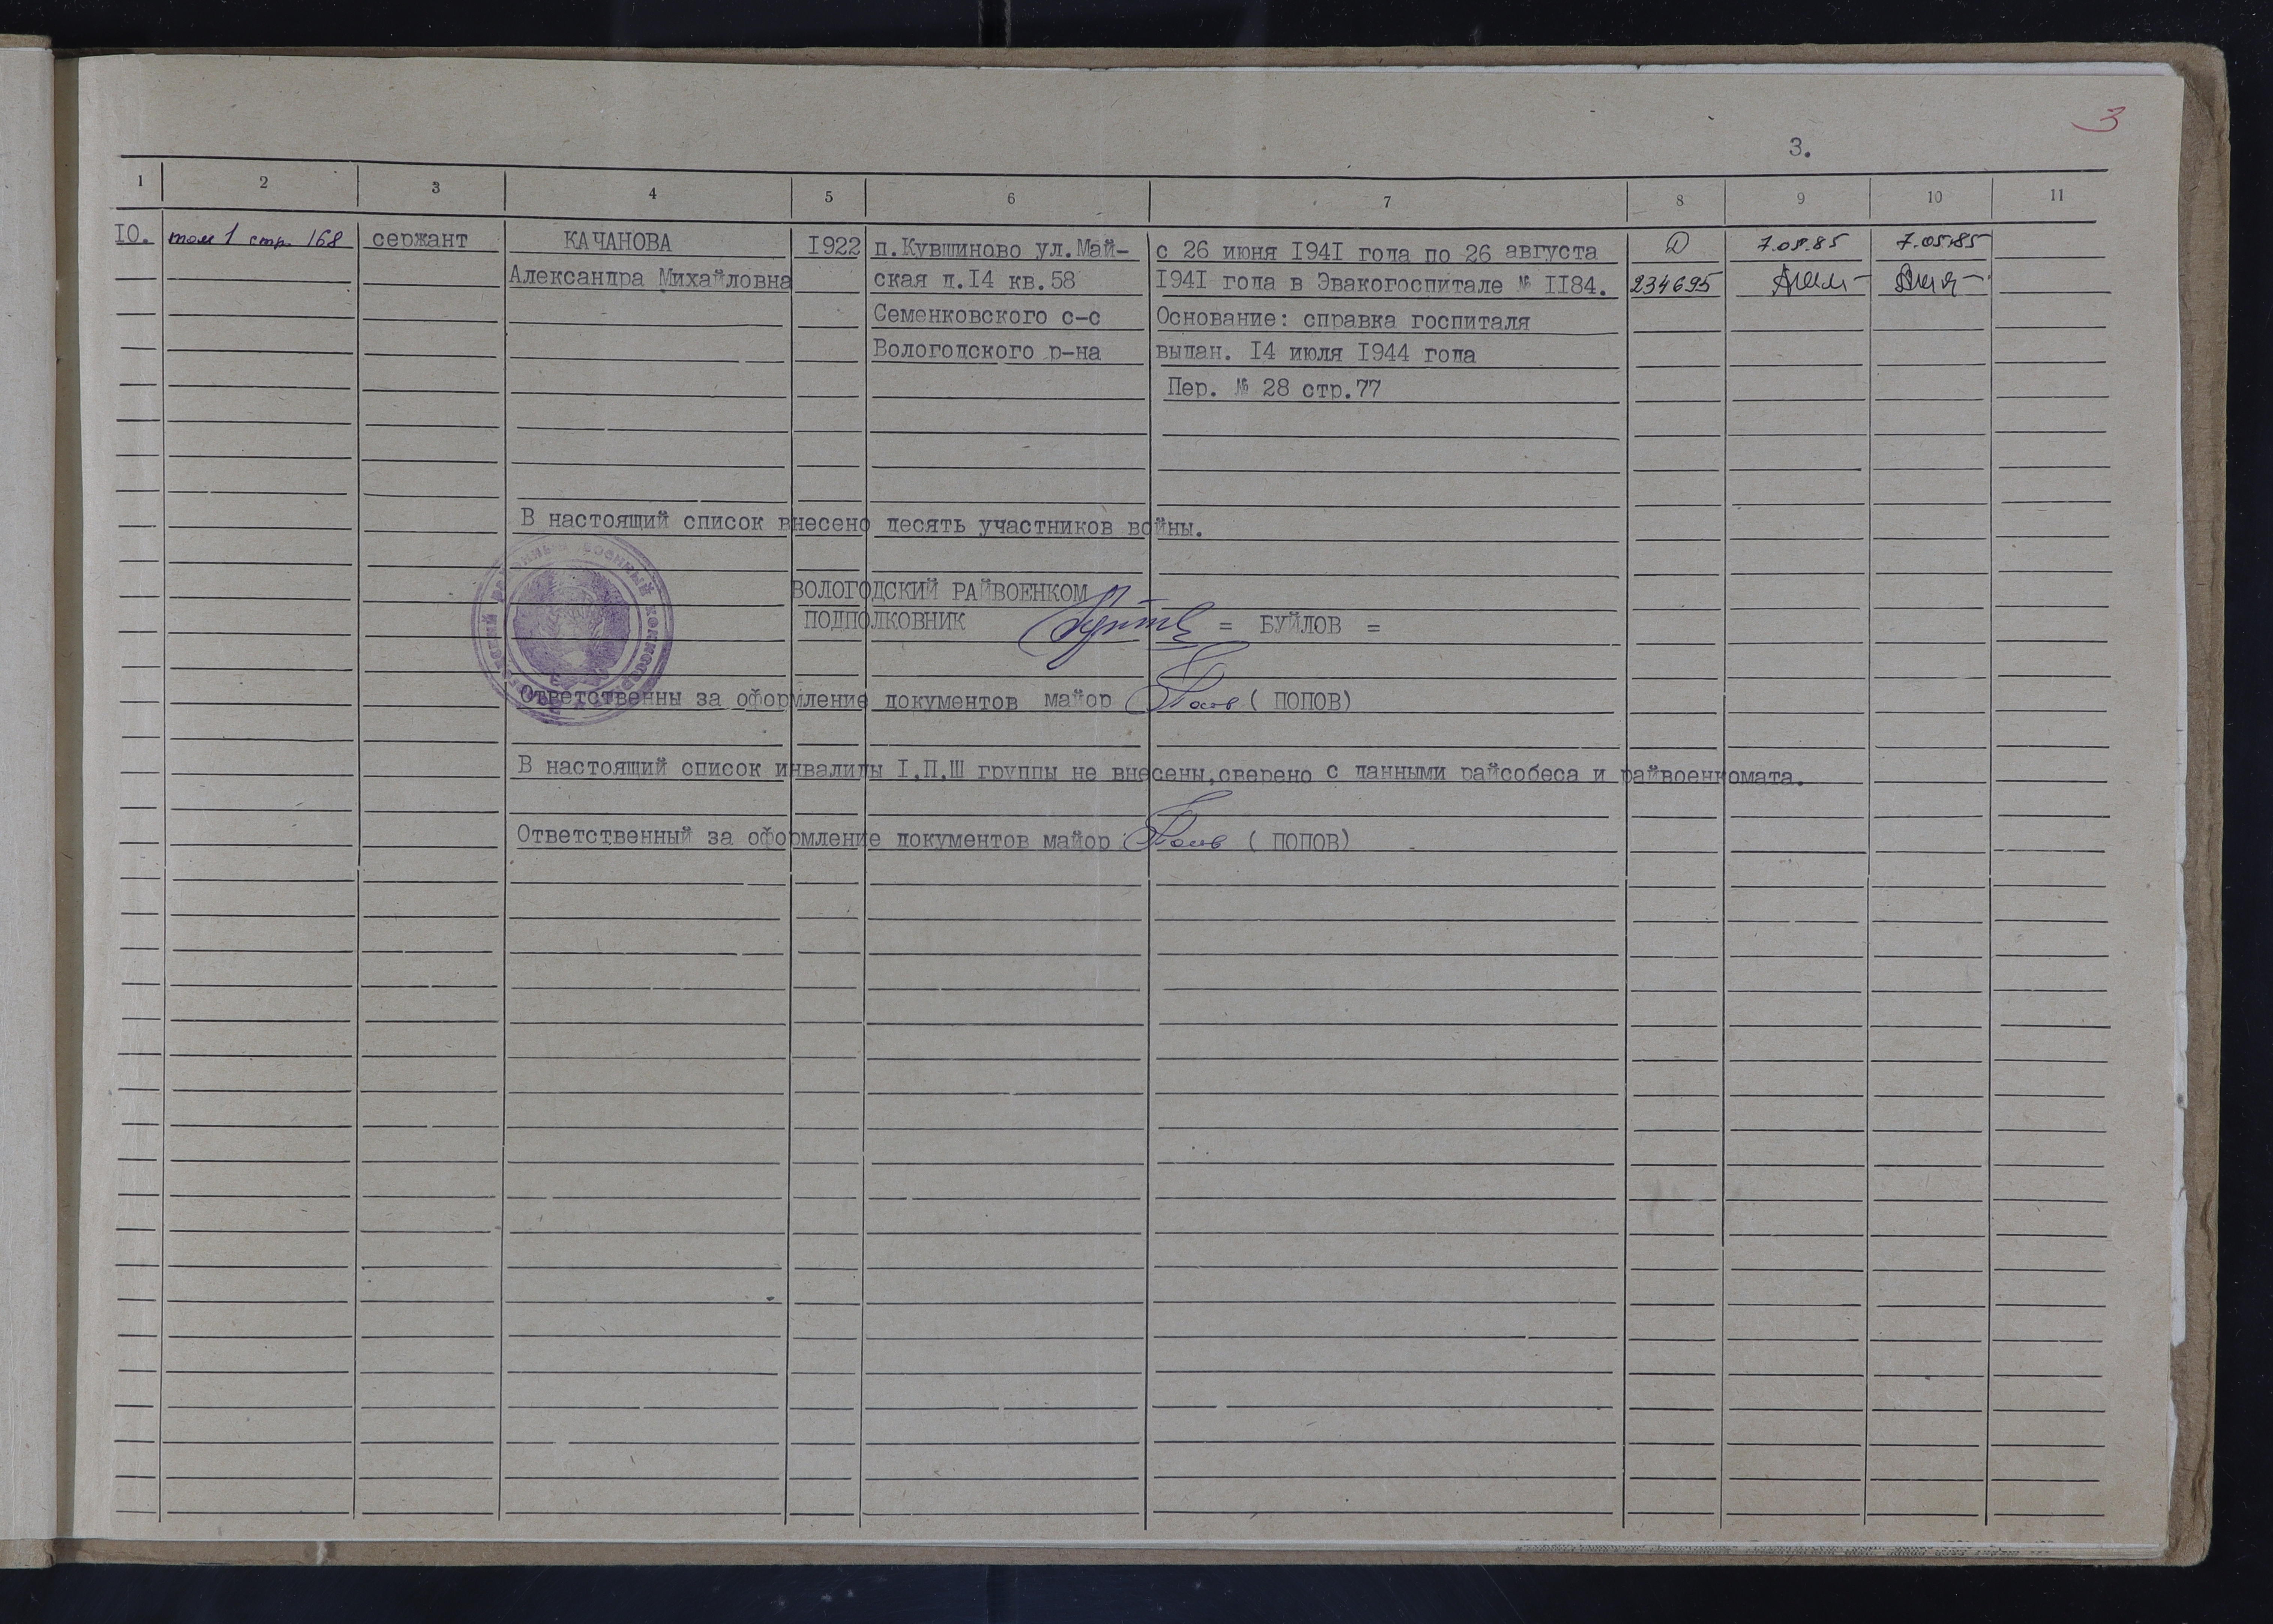 3
3.
1 2 3 4 5 6 7 8 9 10 11
IO. том 1 стр. 168 сержант КАЧАНОВА I922 п.Кувшиново ул.Май- с 26 июня I94I года по 26 августа Д 7.05.85 7.05.85
Александра Михайловна ская д.I4 кв.58 I94I года в Эвакогоспитале № II84. 234695
Семенковского с-с Основание: справка госпиталя
Вологодского р-на выдан. I4 июля I944 года
Пер. № 28 стр.77
В настоящий список внесено десять участников войны.
ВОЛОГОДСКИЙ РАЙВОЕНКОМ
ПОДПОЛКОВНИК = БУЙЛОВ =
Ответственны за оформление документов майор ( ПОПОВ)
В настоящий список инвалиды I,П,Ш группы не внесены,сверено с данными райсобеса и райвоенкомата.
Ответственный за оформление документов майор ( ПОПОВ)